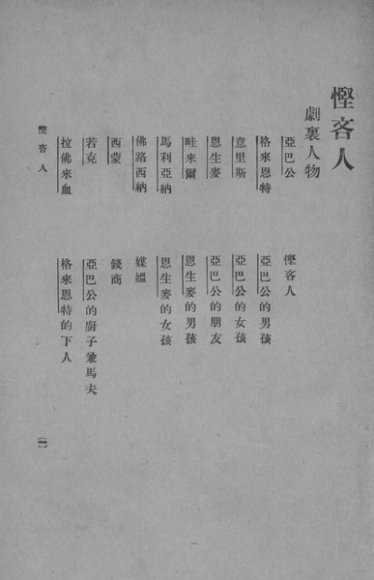 慳吝人
劇裏人物
亞巴公 慳吝人
格來恩特 亞巴公的男孩
意里斯 亞巴公的女孩
恩生麥 亞巴公的朋友
哇來爾 恩生麥的男孩
馬利亞納 恩生麥的女孩
佛路西納 媒媼
西蒙 錢商
若克 亞巴公的廚子兼馬夫
拉佛來血 格來恩特的下人
慳吝人 一